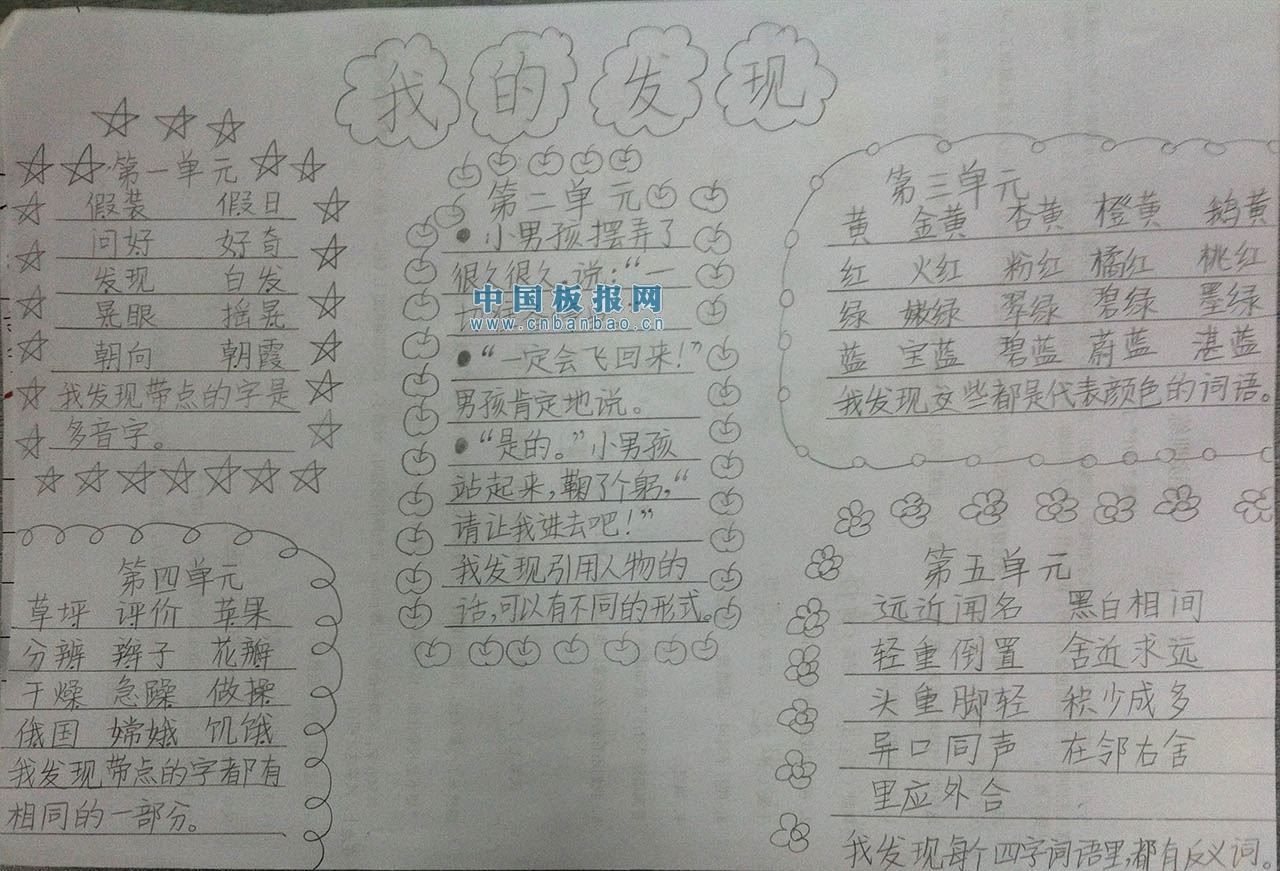 我的发现
第一单元
假装 假日
问好 好奇
发现 白发
晃眼 摇晃
朝向 朝霞
我发现带点的字是
多音字。
第二单元
小男孩摆弄了
很久很久,说:“一
中国板报网
www.cnbanbao.cn
“一定会飞回来!”
男孩肯定地说。
“是的。”小男孩
站起来,鞠了个躬,“
请让我进去吧!”
我发现引用人物的
话,可以有不同的形式。
第三单元
黄 金黄 杏黄 橙黄 鹅黄
红 火红 粉红 橘红 桃红
绿 嫩绿 翠绿 碧绿 墨绿
蓝 宝蓝 碧蓝 蔚蓝 湛蓝
我发现这些都是代表颜色的词语。
第四单元
草坪 评价 苹果
分辨 辫子 花瓣
干燥 急躁 做操
俄国 嫦娥 饥饿
我发现带点的字都有
相同的一部分。
第五单元
远近闻名 黑白相间
轻重倒置 舍近求远
头重脚轻 积少成多
异口同声 在邻右舍
里应外合
我发现每个四字词语里,都有反义词。